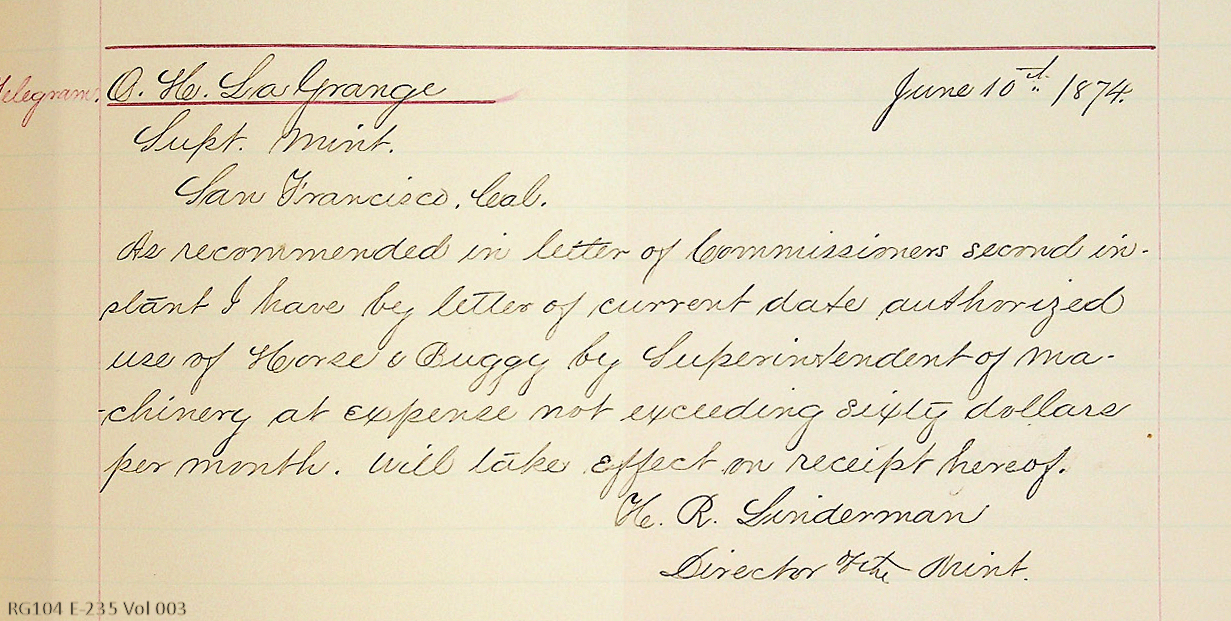 Telegram. O. H. La Grange June 10th. /874.
Supt. Mint.
San Francisco, Cal.
As recommended in letter of Commissioners second in-
stant I have by letter of current date authorized
use of Horse & Buggy by Superintendent of Ma-
-chinery at expense not exceeding sixty dollars
per month. Will take effect on receipt hereof.
H. R. Linderman
Director of the Mint.
RG104 E-235 Vol 003